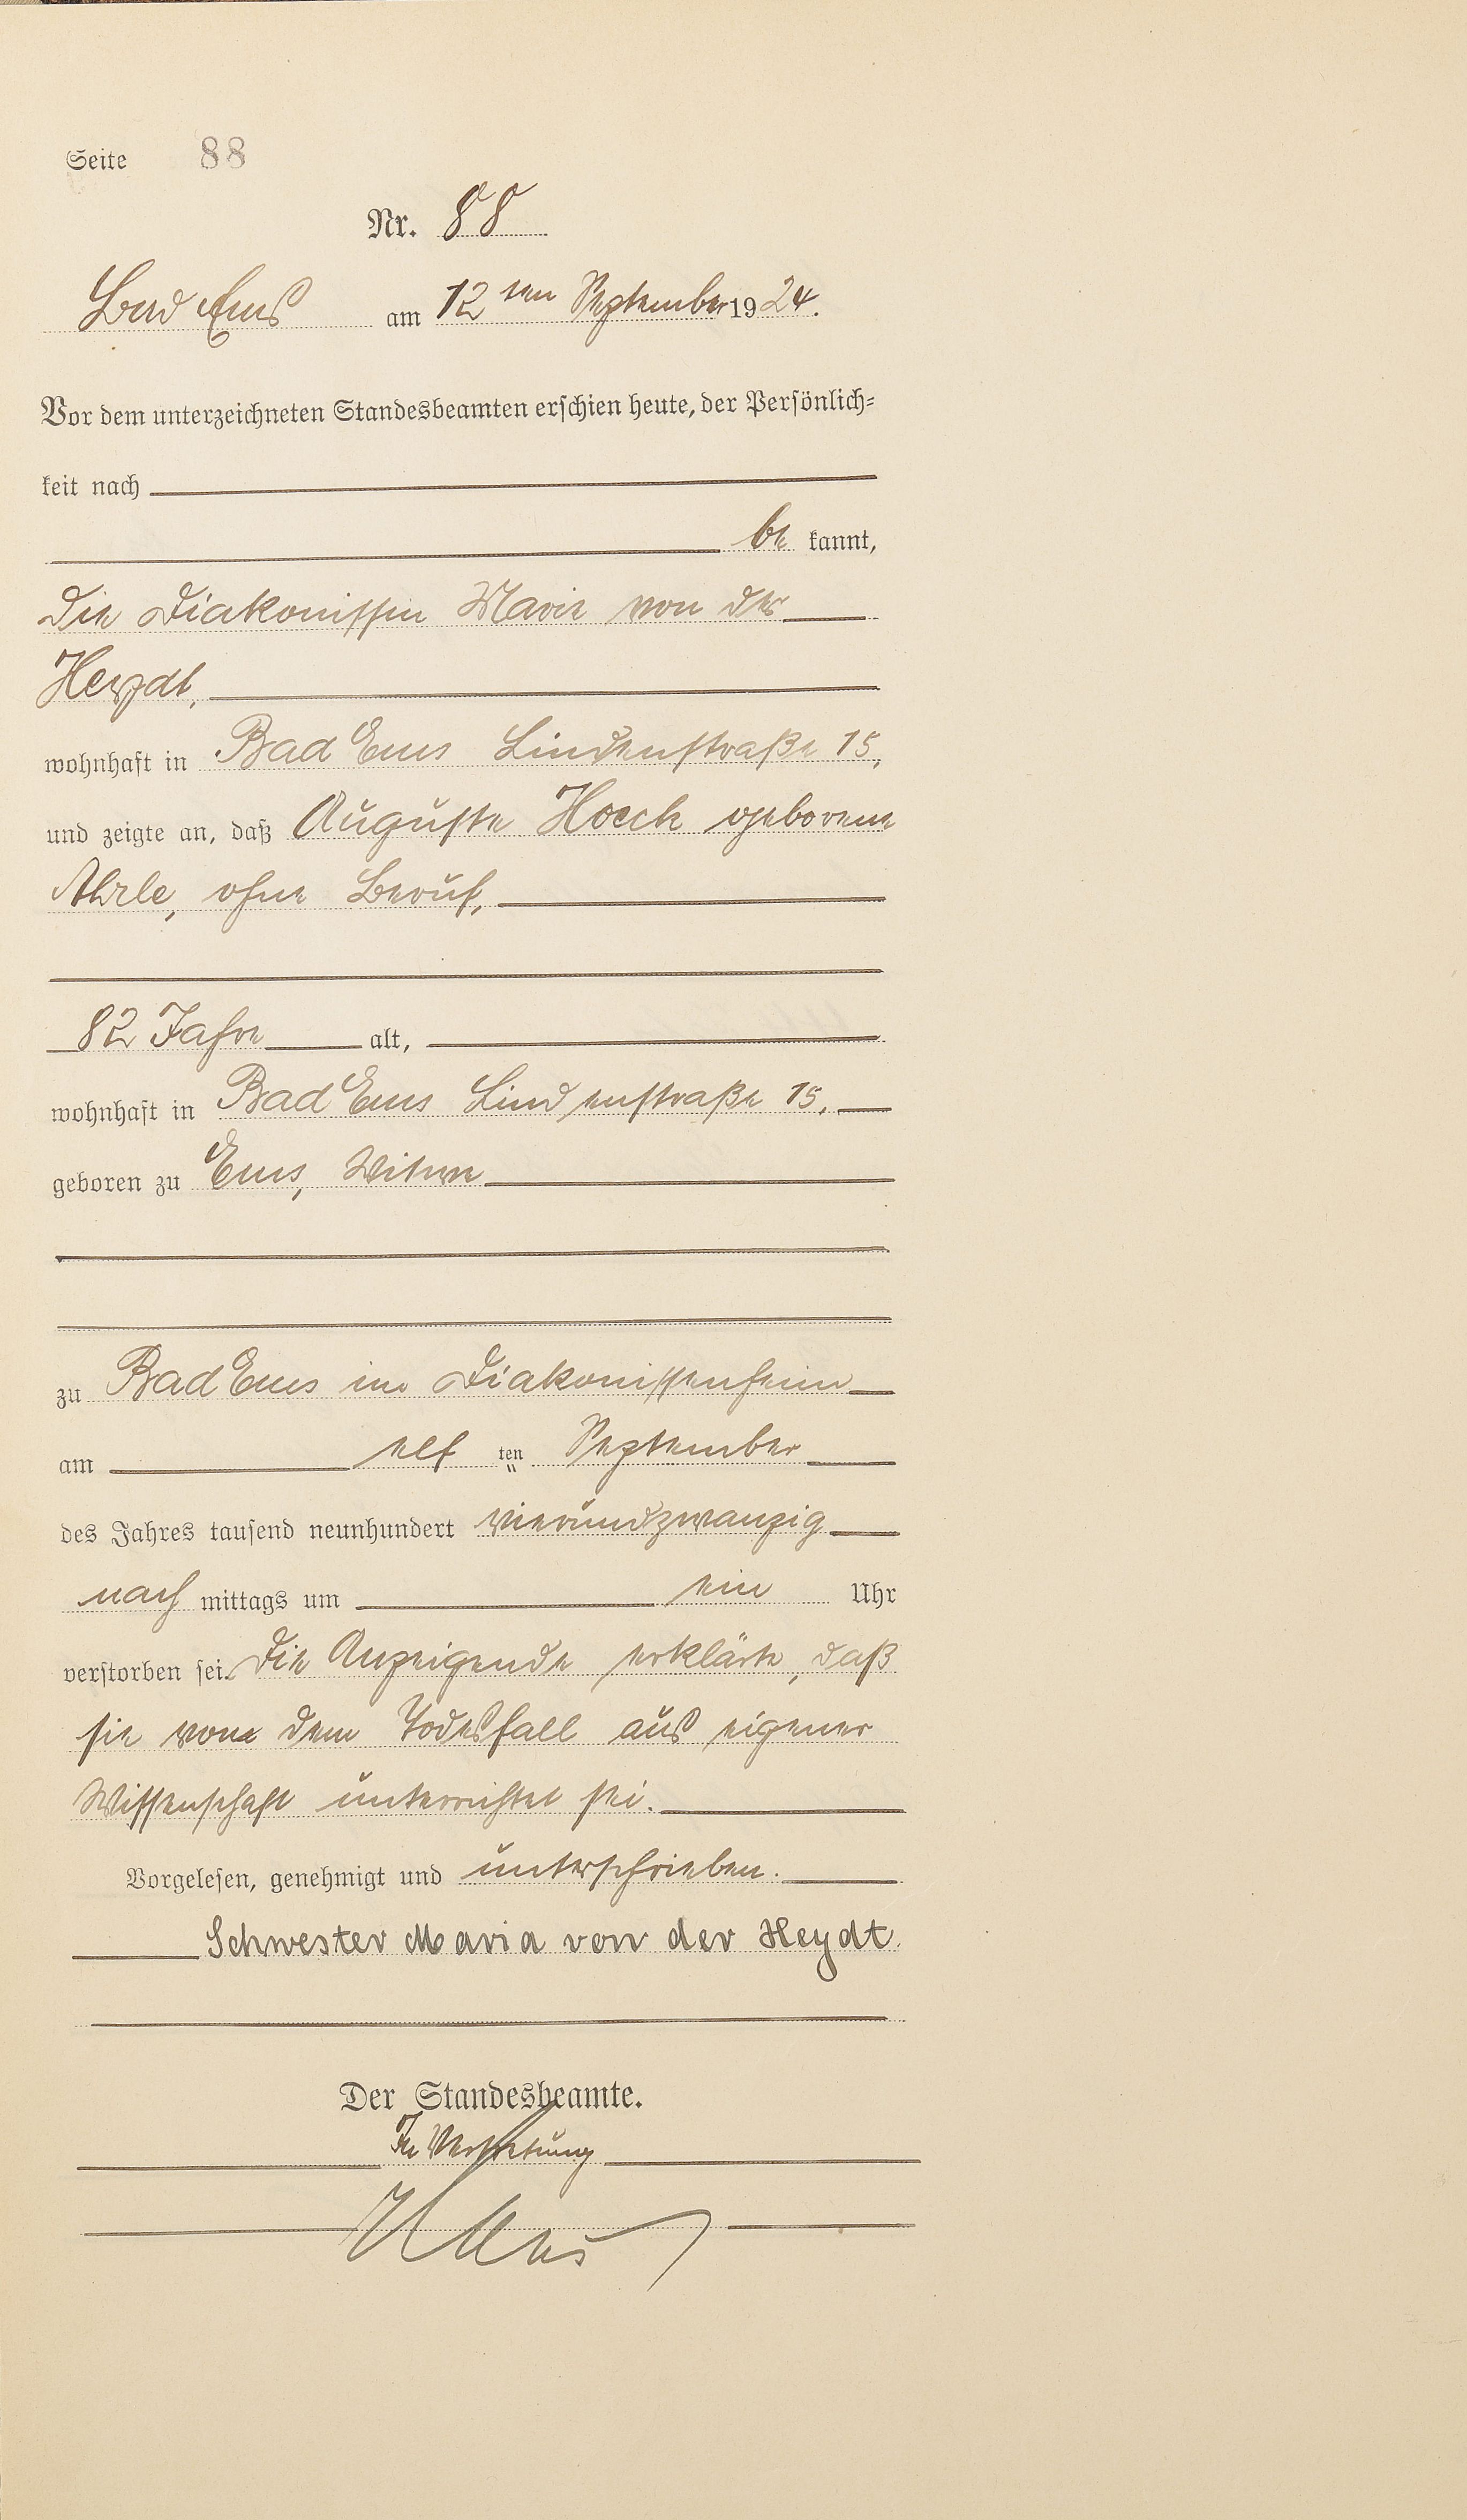 Seite 88
Nr. 88
Bad Ems am 12ten September 1924.
Vor dem unterzeichneten Standesbeamten erschien heute, der Persönlich-
keit nach
be kannt,
die Diakonissin Marie von der
Heydt,
wohnhaft in Bad Ems Lindenstraße 15,
und zeigte an, daß Auguste Hoeck geborene
ohne Beruf,
82 Jahre alt,
wohnhaft in Bad Ems Lindenstraße 15,
geboren zu Ems, Witwe
zu Bad Ems im Diakonissenheim
am elf ten September
des Jahres tausend neunhundert vierundzwanzig
nach mittags um ein Uhr
verstorben sei. Die Anzeigende erklärte, daß
sie von dem Todesfall aus eigener
Wissenschaft unterrichtet sei.
Vorgelesen, genehmigt und unterschrieben.
Schwester Maria von der Heydt
Der Standesbeamte.
In Vertretung